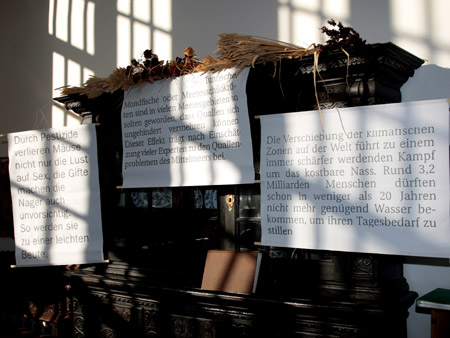 Durch Pestizide
verlieren Mäuse
nicht nur die Lust
auf Sex, die Gifte
machen die
Nager auch
unvorsichtig.
So werden sie
zu einer leichten
Beute.
Mondfische oder Meeresschildkrö-
ten sind in vielen Meeresgebieten so
selten geworden, dass Quallen sich
ungehindert vermehren können.
Dieser Effekt trägt nach Einschät-
zung vieler Experten zu den Quallen-
problemen des Mittelmeers bei.
Die Verschiebung der klimatischen
Zonen auf der Welt führt zu einem
immer schärfer werdenden Kampf
um das kostbare Nass. Rund 3,2
Milliarden Menschen dürften
schon in weniger als 20 Jahren
nicht mehr genügend Wasser be-
kommen, um ihren Tagesbedarf zu
stillen